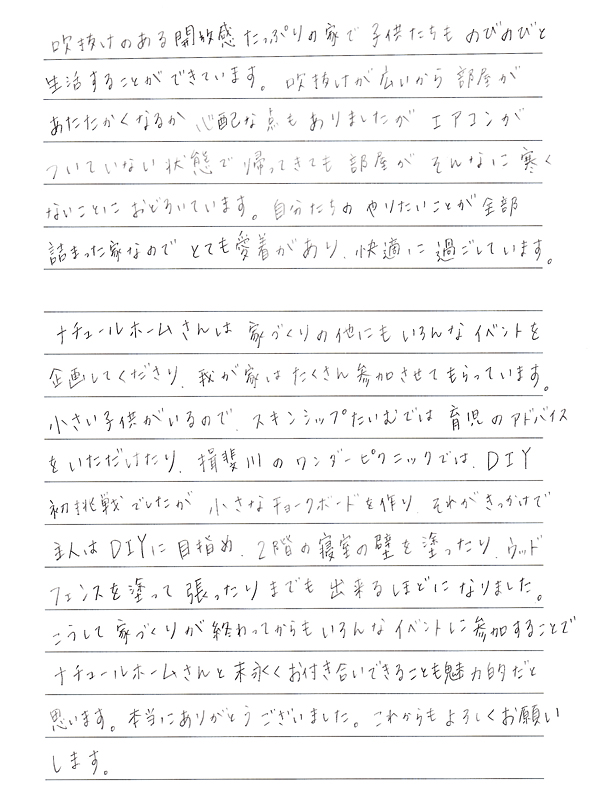 吹抜けのある開放感たっぷりの家で子供たちものびのびと
生活することができています。吹抜けが広いから部屋が
あたたかくなるか心配な点もありましたがエアコンが
ついていない状態で帰ってきても部屋がそんなに寒く
ないことにおどろいています。自分たちのやりたいことが全部
詰まった家なのでとても愛着があり、快適に過ごしています。
ナチュールホームさんは家づくりの他にもいろんなイベントを
企画してくださり、我が家はたくさん参加させてもらっています。
小さい子供がいるので、スキンシップたいむでは育児のアドバイス
をいただけたり、揖斐川のワンダーピクニックでは、DIY
初挑戦でしたが小さなチョークボードを作り、それがきっかけで
主人はDIYに目指め、2階の寝室の壁を塗ったり、ウッド
フェンスを塗って張ったりまでも出来るほどになりました。
こうして家づくりが終わってからもいろんなイベントに参加することで
ナチュールホームさんと末永くお付き合いできることも魅力的だと
思います。本当にありがとうございました。これからもよろしくお願い
します。